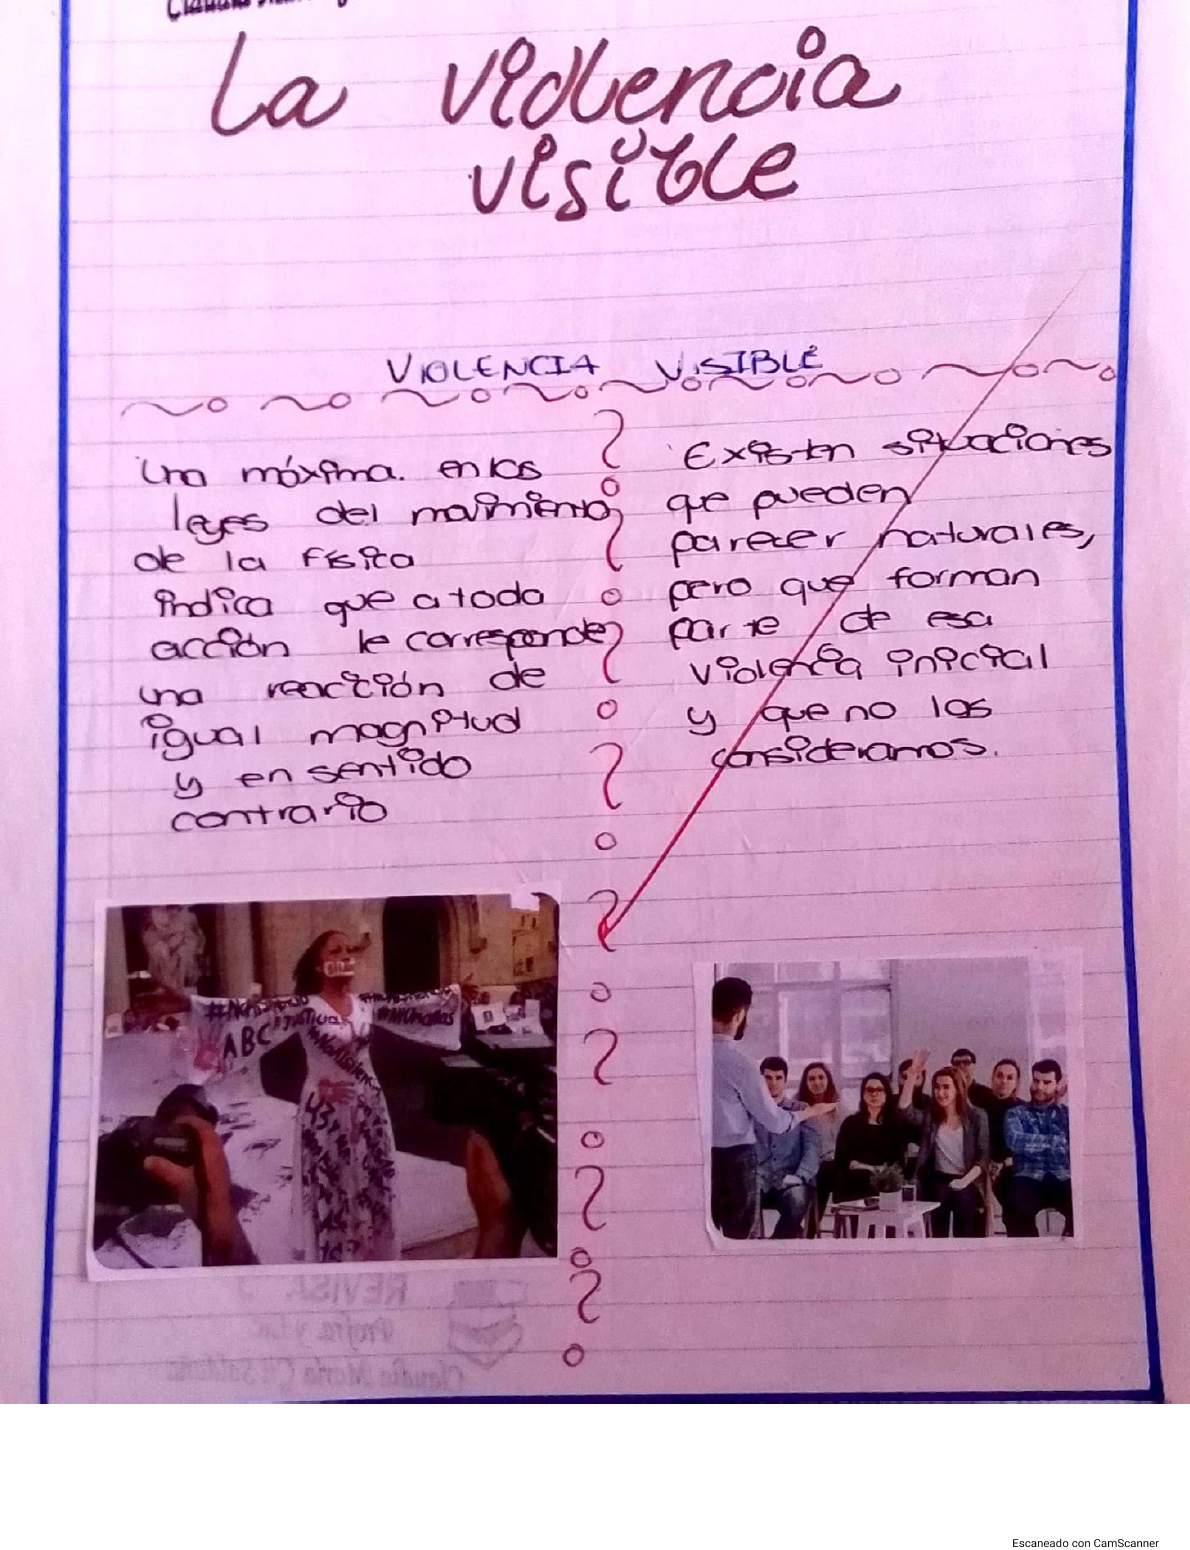 La violencia
visible
VIOLENCIA VISIBLE
Una máxima. en las
leyes del movimiento
de la física
indica que a toda
acción le corresponde
una reacción de
igual magnitud
y en sentido
contrario
Existen situaciones
que pueden
parecer naturales,
pero que forman
parte de esa
violencia inicial
y que no las
consideramos.
ABC
REVISA
Profra. y Lic.
Claudia María
Escaneado con CamScanner